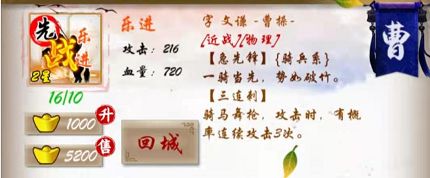 先
战
乐进
2星
16/10
1000
升
5200
售
乐进
攻击：216
血量：720
回城
字 文谦 -曹操-
[近战][物理]
【急先锋】{骑兵系}
一骑当先，势如破竹。
【三连刺】
骑马舞枪，攻击时，有概
率连续攻击3次。
曹